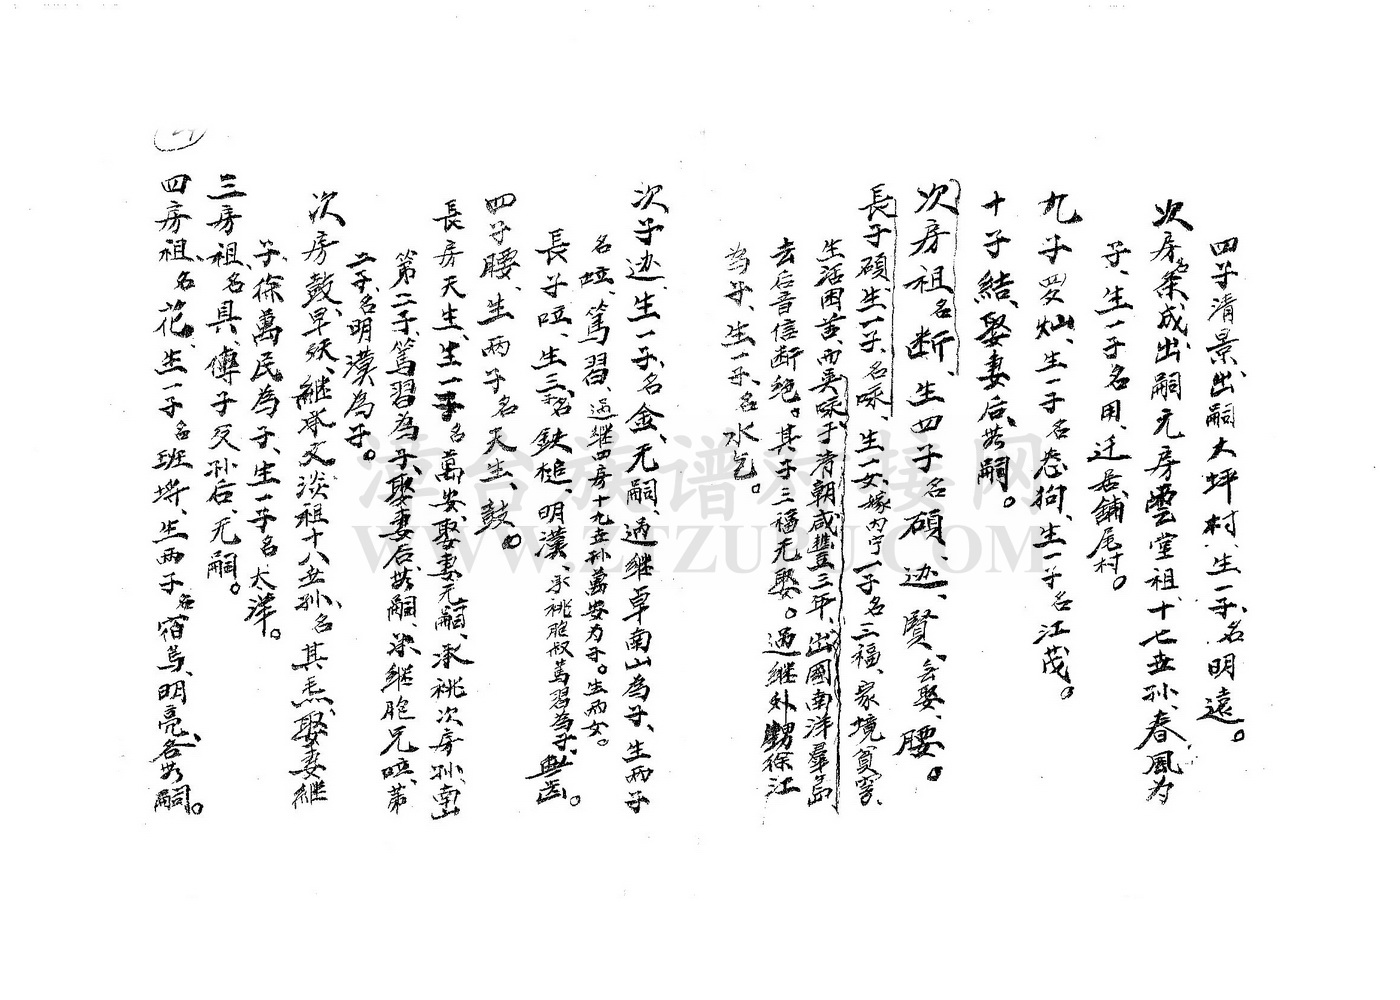 四子清景、出嗣大坪村、生一子、名明遠。
次房名荣成、出嗣元房雲堂祖、十七世孙、春風为
子、生一子名用、迁居鋪尾村。
九子四灿、生一子名卷狗、生一子名江茂。
十子結、娶妻后無嗣。
次房祖名断、生四子名碩、边、賢、娶、腰。
長子碩、生一子、名咏、生一女、嫁内宁一子名三福、家境貧窮、
生活困苦、而英咏于清朝咸豐三年、出國南洋羣島
去后音信断絶。其子三福无娶。過継外甥徐江
為子、生一子、名水乞。
次子边、生一子、名金、无嗣、過继卓南山為子、生两子
名哑、篤習、過继四房十九世孙萬安为子。生两女。
長子哑、生三子名鉄槌、明漢、承祧胞叔篤習為子、
四子腰、生两子名天生、鼓。
長房天生、生一子名萬安、娶妻无嗣、承祧次房孙、南山
第二子、篤習為子、娶妻后無嗣、承继胞兄哑、第
二子、名明漢為子。
次房鼓、早夭、継承文淡祖十八世孙、名其、娶妻継
子、徐萬民為子、生一子名太洋。
三房祖、名具、傳子及孙后、无嗣。
四房祖、名花、生一子名班、生两子名宿鸟、明亮、各無嗣。
漳台族谱对接网
WWW.ZTZUPU.COM